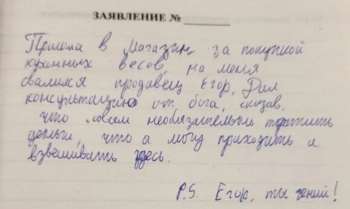 ЗАЯВЛЕНИЕ №
Пришла в магазин за покупкой
кухонных весов, на меня
свалился продавец Егор, Дал
консультацию от бога, сказав,
что совсем необязательно тратить
деньги, что а могу приходить и
взвешивать здесь.
P.S. Егор, ты гений!